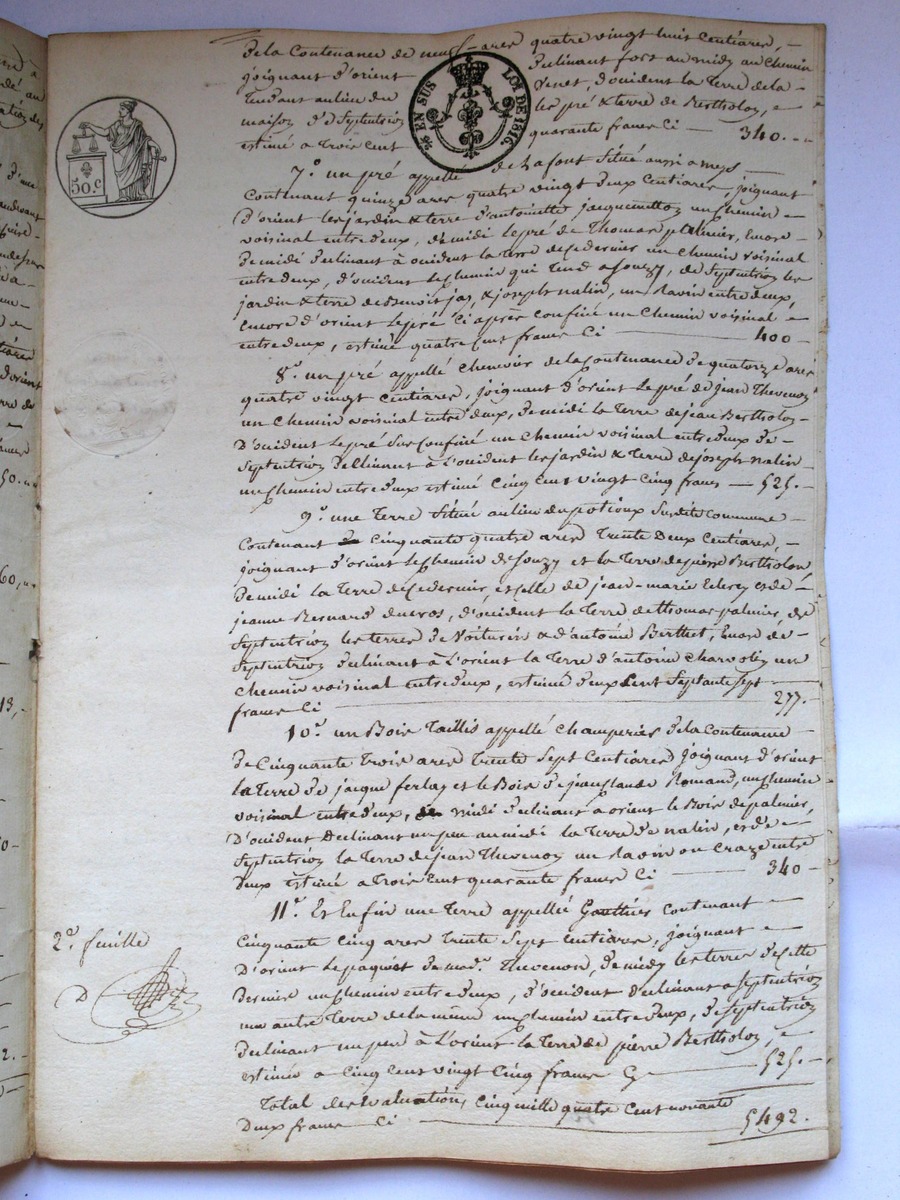 de la Contenance de neuf ares quatre vingt huit Centiares, –
joignant d'orient declinant fort au midy un Chemin
tendant au lieu du Venet, d'ocident la Terre de la
maison d'd Septentrion les pré & terre de Bertholon, e
estimé a trois cent quarante francs Ci — 340. –
EN SUS LOI DE 1816.
50.C
7.° un pré appellé de La font Situé aussi a meys
Contenant quinze ares quatre vingt deux Centiares, joignant
d'orient les jardin & terre d'antoinette jacquemetton un Chemin –
voisinal entre deux, de midi le pré de Thomas palmier, Encore
de midi declinant à ocident la terre de Ce dernier un Chemin voisinal
entre deux, d'ocident le Chemin qui tend a Souzy, de Septentrion les
jardin & terre de Benoit jas, & joseph nalin, un Ravin entre deux,
Encore d'orient le pré Ci après confiné un Chemin voisinal –
entre deux, estimé quatre Cent francs Ci — 400 –
8.° un pré appellé Chenevier de la Contenance de quatorze ares
quatre vingt Centiares, joignant d'orient le pré de Jean Thevenon
un Chemin voisinal entre deux, de midi la Terre de jean Bertholon –
D'ocident le pré Sus Confiné un Chemin voisinal entre deux de –
Septentrion declinant à L'ocident les jardin & Terre de joseph nalin
un Chemin entre deux estimé Cinq Cent vingt Cinq francs — 525. –
9.° une Terre Situé au lieu du potioux Susdite Commune
Contenant Cinquante quatre ares Trente Deux Centiares, –
joignant d'orient le Chemin de Souzy et la Terre de pierre Bertholon,
de midi la Terre de Ce dernier, et celle de jean-marie et de
jeanne Bernard ducros, d'ocident la Terre de thomas palmier, de
Septentrion les terres de Voiturin & d'antoine Berthet, Encore de –
Septentrion declinant à L'orient la Terre d'antoine Charvolin un
Chemin voisinal entre deux, estimé deux Cent Septante Sept
francs Ci — 277. –
10.° un Bois Taillis appellé Champeries de la Contenance
de Cinquante Trois ares Trente Sept Centiares joignant d'orient
la Terre de jacque ferlay et le Bois de jean Claude Romand, un Chemin
voisinal entre deux, de midi declinant a orient le Bois de palmier,
D'ocident Declinant un peu au midi la Terre de nalin, et de –
Septentrion la Terre de jean Thevenon un Ravin ou Craze entre
Deux estimé a Trois Cent quarante francs Ci — 340
11.° Et Enfin une Terre appellée Gouttes Contenant –
Cinquante Cinq ares Trente Sept Centiares, joignant –
D'orient le paquis de mad.e Thevenon, de midy les terres de Cette
Derniere un Chemin entre deux, d'ocident declinant a Septentrion
un autre Terre de la même un Chemin entre deux, de Septentrion
declinant un peu à L'orient la Terre de pierre Bertholon, e
estimée a Cinq Cent vingt Cinq francs Cy — 525. –
Total des Evaluation, Cinq mille quatre Cent nonante
Deux francs Ci — 5492.
2.e feuille